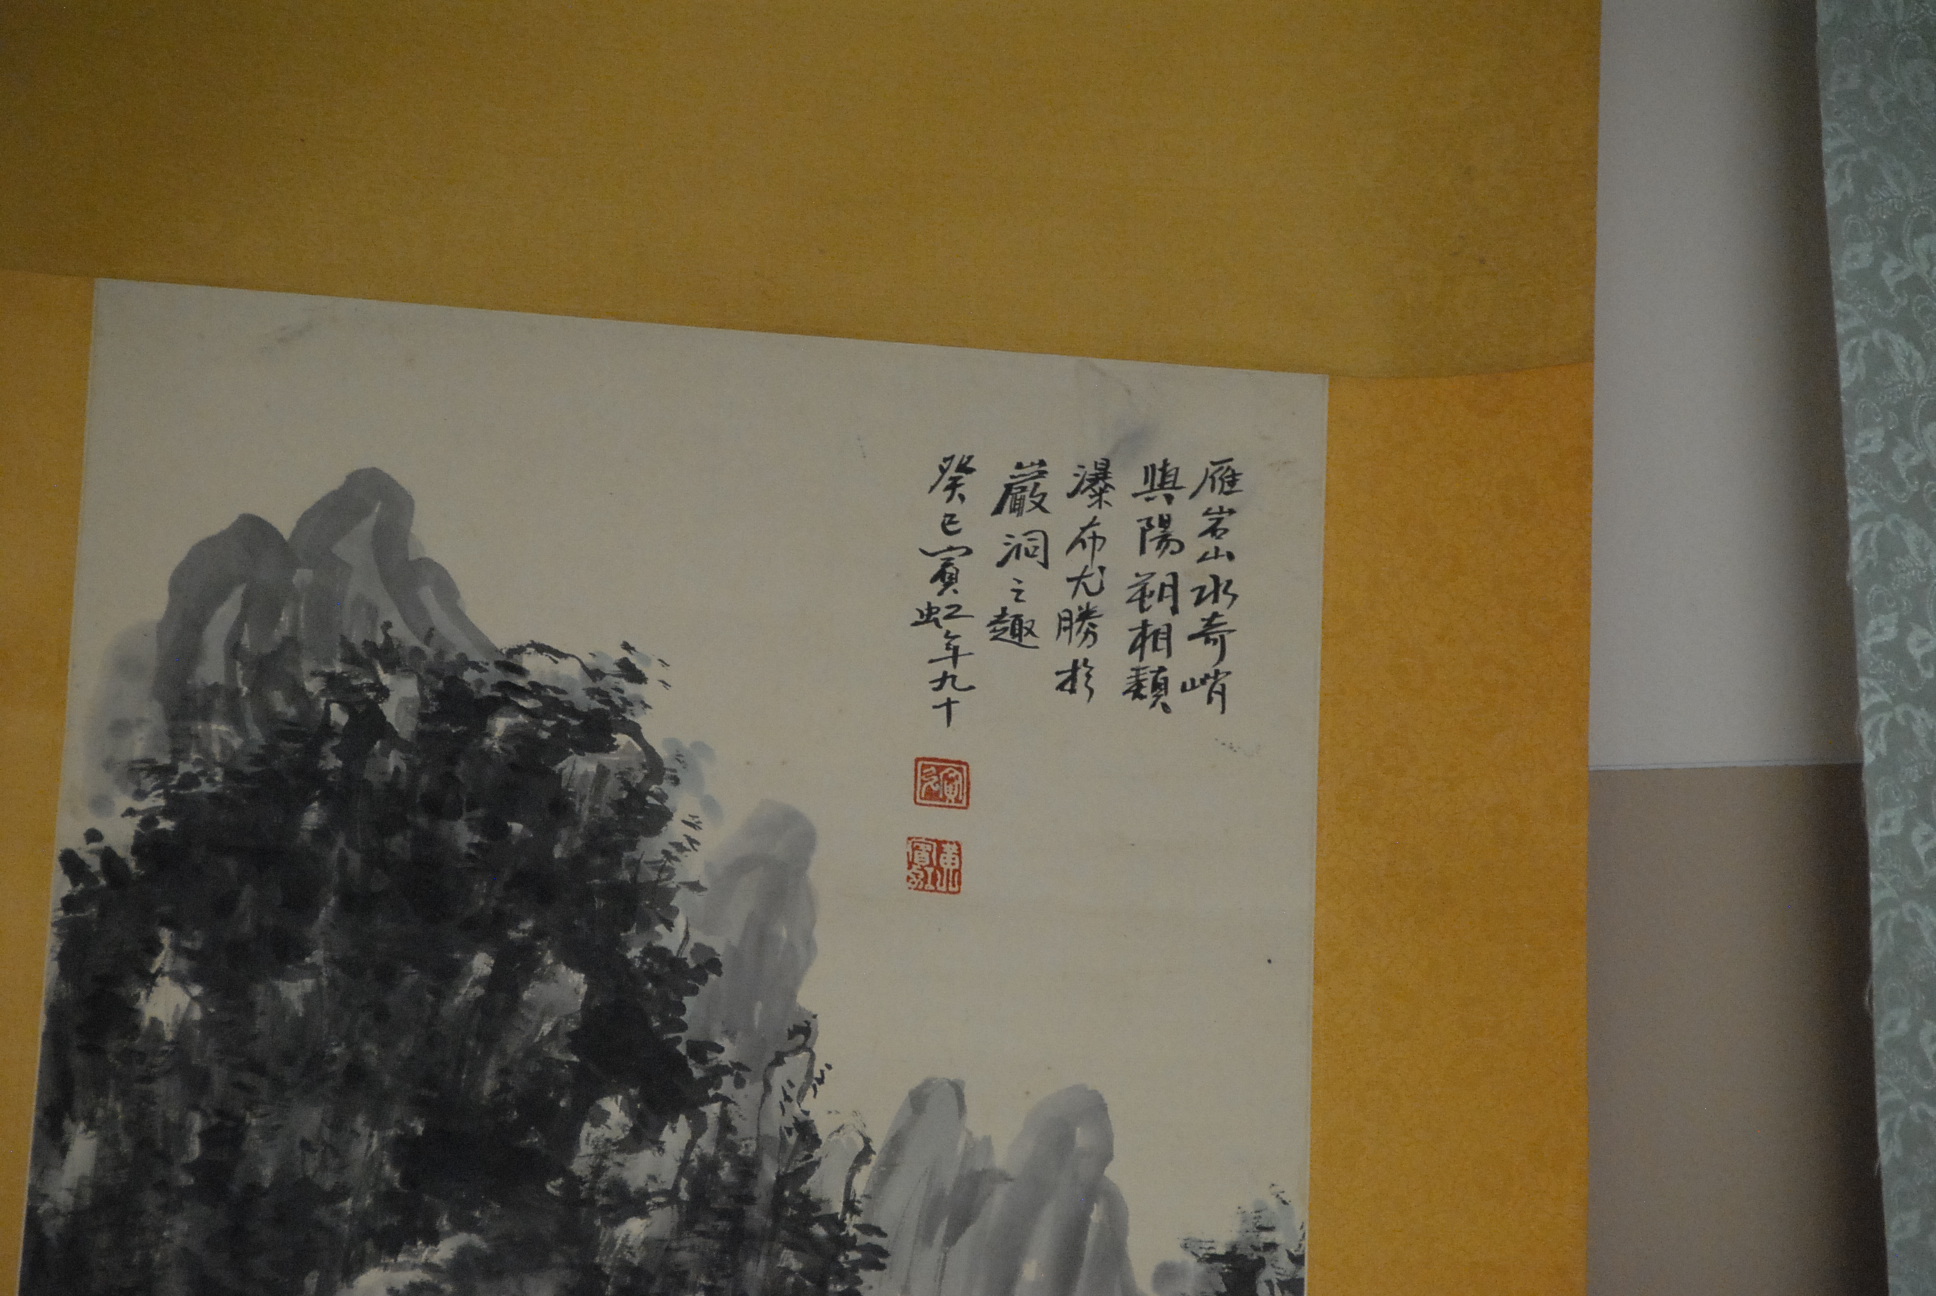 雁宕山水奇峭
與陽朔相類
瀑布尤勝於
巖洞之趣
癸巳賓虹年九十
黃賓虹